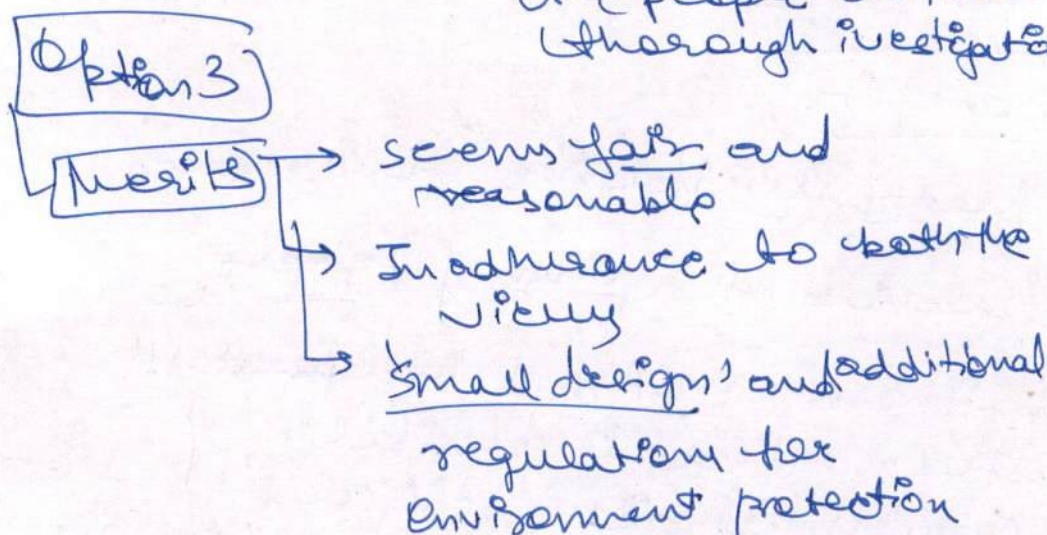 thorough ivestigatio
Option 3
Merits → seems fair and
reasonable
→ In adherance to both the
views
→ 'Small design' and additional
regulations for
environment protection